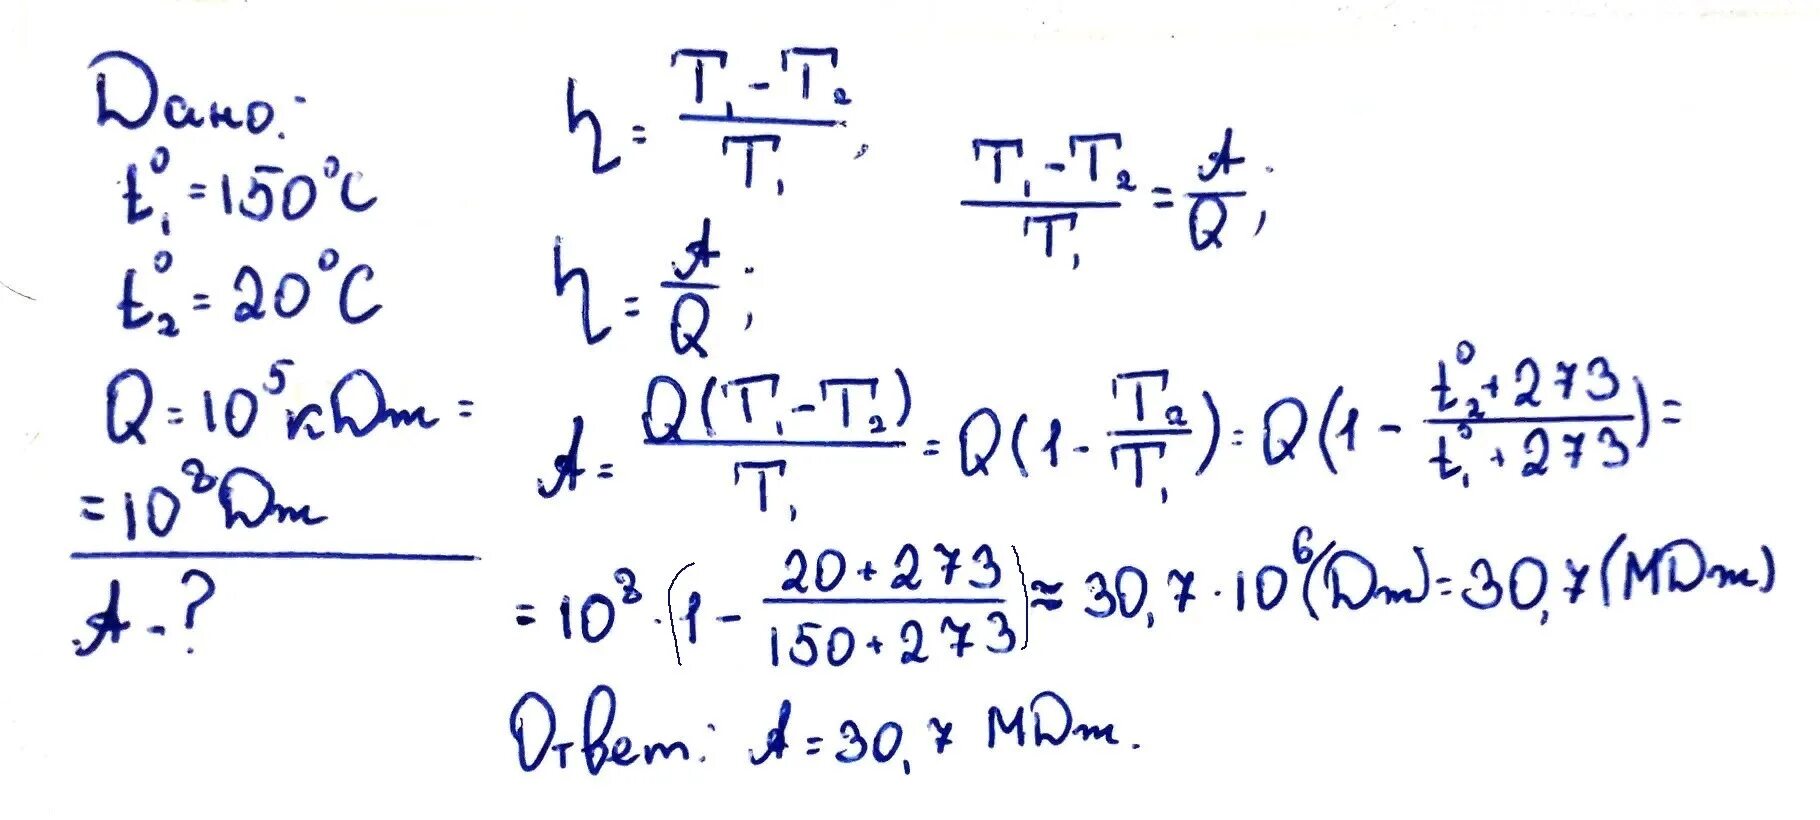 Дано:
t₁⁰ = 150⁰C
t₂⁰ = 20⁰C
Q = 10⁵ кДж =
= 10⁸ Дж
A - ?
η = (T₁ - T₂) / T₁,
η = A / Q;
(T₁ - T₂) / T₁ = A / Q;
A = Q(T₁ - T₂) / T₁ = Q(1 - T₂ / T₁) = Q(1 - (t₂⁰ + 273) / (t₁⁰ + 273)) =
= 10⁸ · (1 - (20 + 273) / (150 + 273)) ≈ 30,7 · 10⁶ (Дж) = 30,7 (МДж)
Ответ: A = 30,7 МДж.